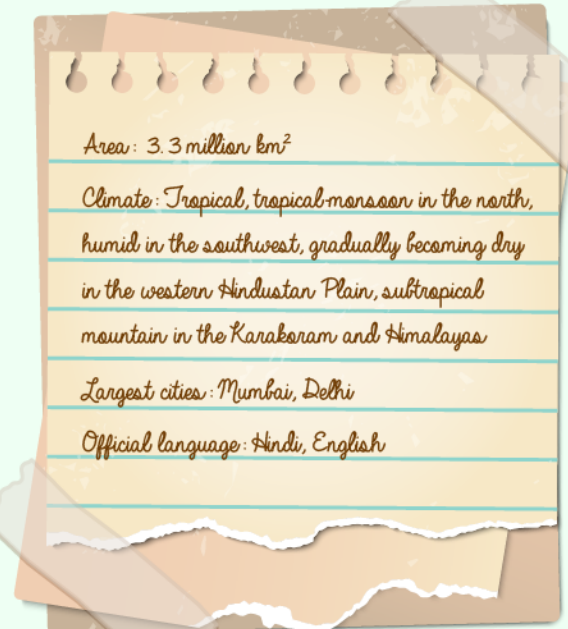 Area: 3.3 million km²
Climate: Tropical, tropical-monsoon in the north,
humid in the southwest, gradually becoming dry
in the western Hindustan Plain, subtropical
mountain in the Karakoram and Himalayas
Largest cities: Mumbai, Delhi
Official language: Hindi, English